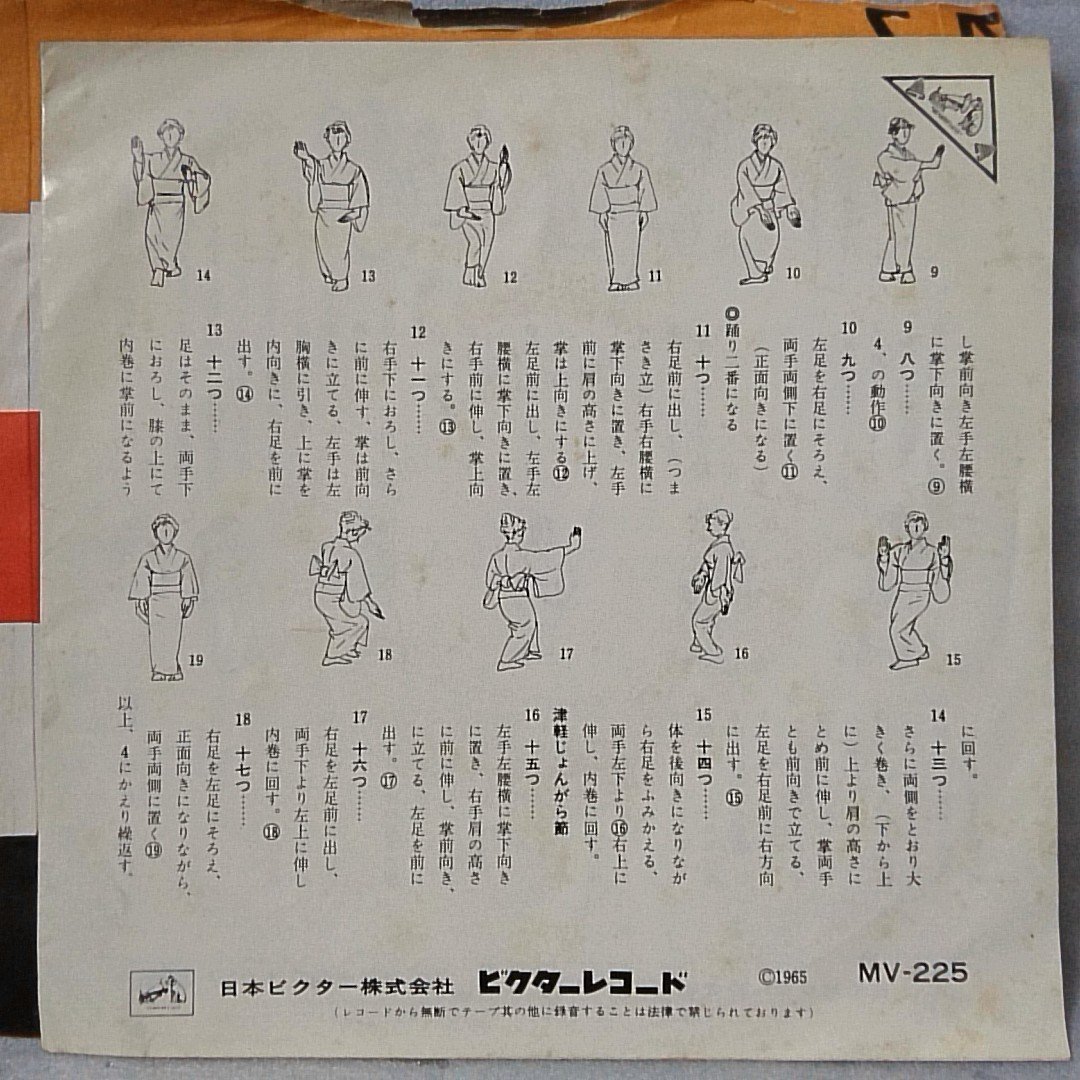 14
13
12
11
10
9
し掌前向き左手左腰横
に掌下向きに置く。⑨
9 八つ……
4、の動作⑩
10 九つ……
左足を右足にそろえ、
両手両側下に置く⑪
(正面向きになる)
◎踊り二番になる
11 十つ……
右足前に出し、(つま
さき立)右手右腰横に
掌下向きに置き、左手
前に肩の高さに上げ、
掌は上向きにする⑫
左足前に出し、左手左
腰横に掌下向きに置き、
右手前に伸し、掌上向
きにする。⑬
12 十一つ……
右手下におろし、さら
に前に伸す、掌は前向
きに立てる、左手は左
胸横に引き、上に掌を
内向きに、右足を前に
出す。⑭
13 十二つ……
足はそのまま、両手下
におろし、膝の上にて
内巻に掌前になるよう
19
18
17
16
15
に回す。
14 十三つ……
さらに両側をとおり大
きく巻き、(下から上
に)上より肩の高さに
とめ前に伸し、掌両手
とも前向きで立てる、
左足を右足前に右方向
に出す。⑮
15 十四つ……
体を後向きになりなが
ら右足をふみかえる、
両手左下より⑯右上に
伸し、内巻に回す。
津軽じょんがら節
16 十五つ……
左手左腰横に掌下向き
に置き、右手肩の高さ
に前に伸し、掌前向き、
に立てる、左足を前に
出す。⑰
17 十六つ……
右足を左足前に出し、
両手下より左上に伸し
内巻に回す。⑱
18 十七つ……
右足を左足にそろえ、
正面向きになりながら、
両手両側に置く⑲
以上、4にかえり繰返す。
日本ビクター株式会社 ビクターレコード ©1965 MV-225
(レコードから無断でテープ其の他に録音することは法律で禁じられております)